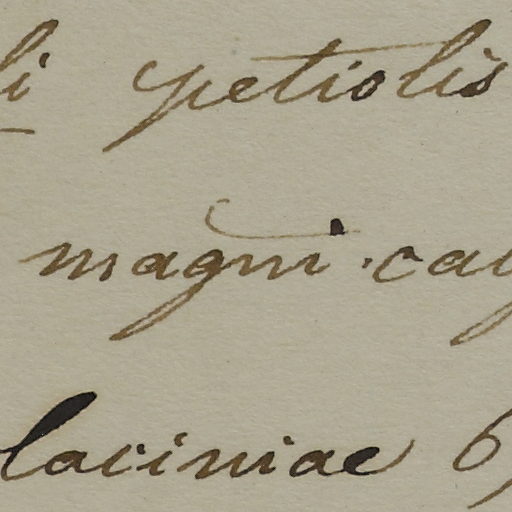 li petiolis
magni. ca
laciniae 6